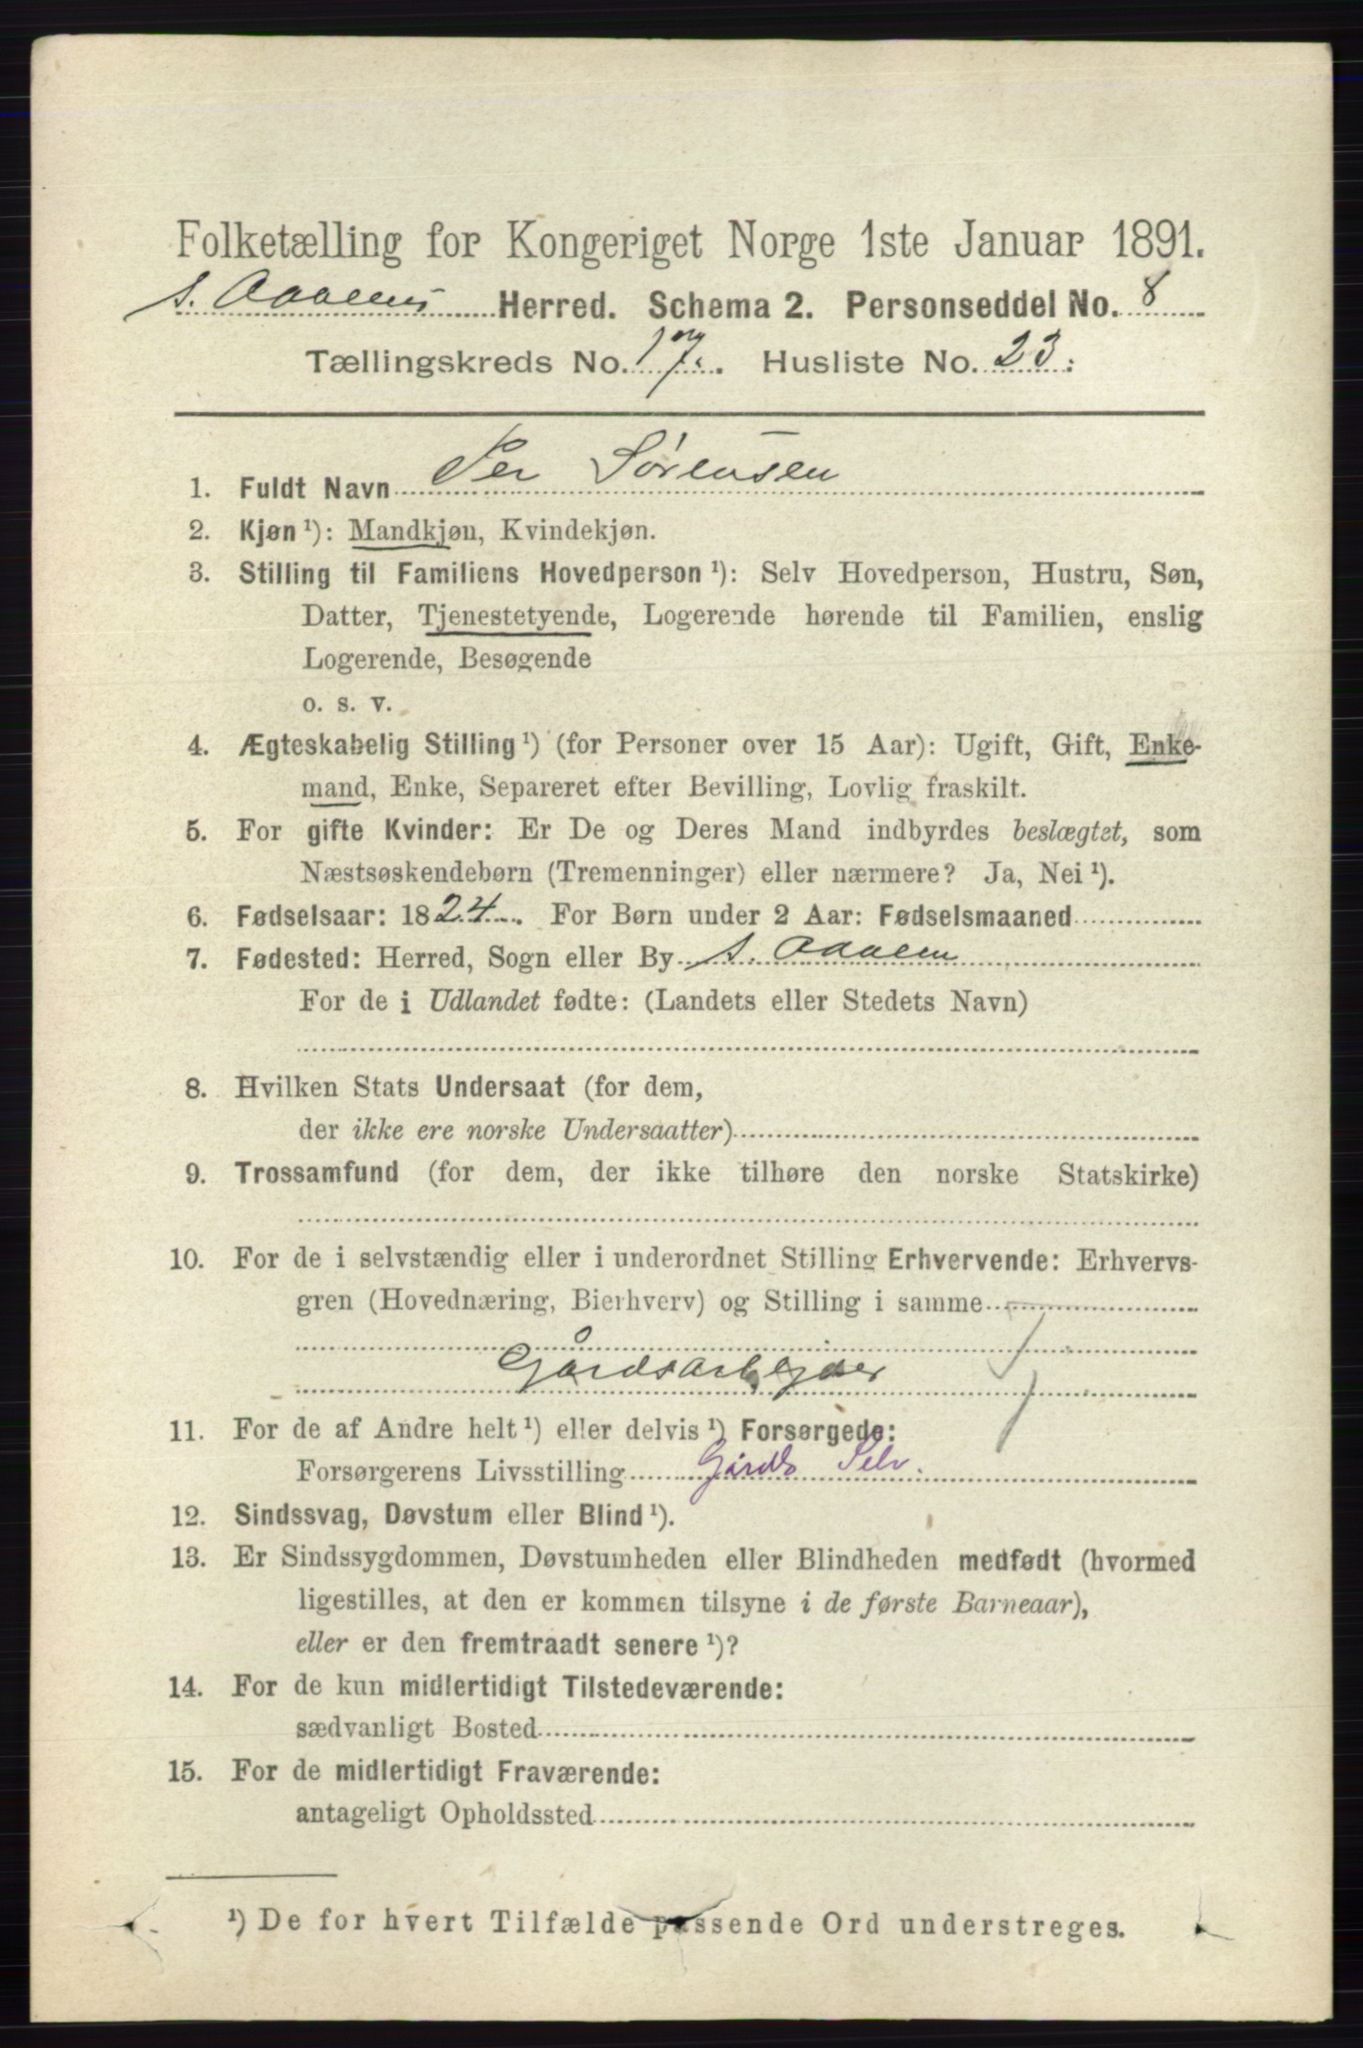 Folketælling for Kongeriget Norge 1ste Januar 1891.
S. Aadalens Herred. Schema 2. Personseddel No. 8
Tællingskreds No. 17. Husliste No. 23.
1. Fuldt Navn Per Sørensen
2. Kjøn ¹): Mandkjøn, Kvindekjøn.
3. Stilling til Familiens Hovedperson ¹): Selv Hovedperson, Hustru, Søn,
Datter, Tjenestetyende, Logerende hørende til Familien, enslig
Logerende, Besøgende
o. s. v.
4. Ægteskabelig Stilling ¹) (for Personer over 15 Aar): Ugift, Gift, Enke-
mand, Enke, Separeret efter Bevilling, Lovlig fraskilt.
5. For gifte Kvinder: Er De og Deres Mand indbyrdes beslægtet, som
Næstsøskendebørn (Tremenninger) eller nærmere? Ja, Nei ¹).
6. Fødselsaar: 1824. For Børn under 2 Aar: Fødselsmaaned
7. Fødested: Herred, Sogn eller By S. Aadalen
For de i Udlandet fødte: (Landets eller Stedets Navn)
8. Hvilken Stats Undersaat (for dem,
der ikke ere norske Undersaatter)
9. Trossamfund (for dem, der ikke tilhøre den norske Statskirke)
10. For de i selvstændig eller i underordnet Stilling Erhvervende: Erhvervs-
gren (Hovednæring, Bierhverv) og Stilling i samme
Gårdsarbejder
11. For de af Andre helt ¹) eller delvis ¹) Forsørgede:
Forsørgerens Livsstilling Gårdb Selv.
12. Sindssvag, Døvstum eller Blind ¹).
13. Er Sindssygdommen, Døvstumheden eller Blindheden medfødt (hvormed
ligestilles, at den er kommen tilsyne i de første Barneaar),
eller er den fremtraadt senere ¹)?
14. For de kun midlertidigt Tilstedeværende:
sædvanligt Bosted
15. For de midlertidigt Fraværende:
antageligt Opholdssted
¹) De for hvert Tilfælde passende Ord understreges.